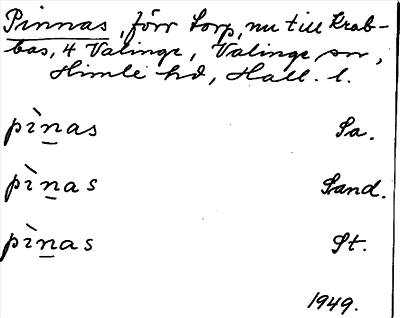 Pinnas, förr torp, nu till Krab-
bas, 4 Valinge, Valinge sn,
Himle hd, Hall. l.
pìnas Sa.
pìnas Sand.
pìnas St.
1949.